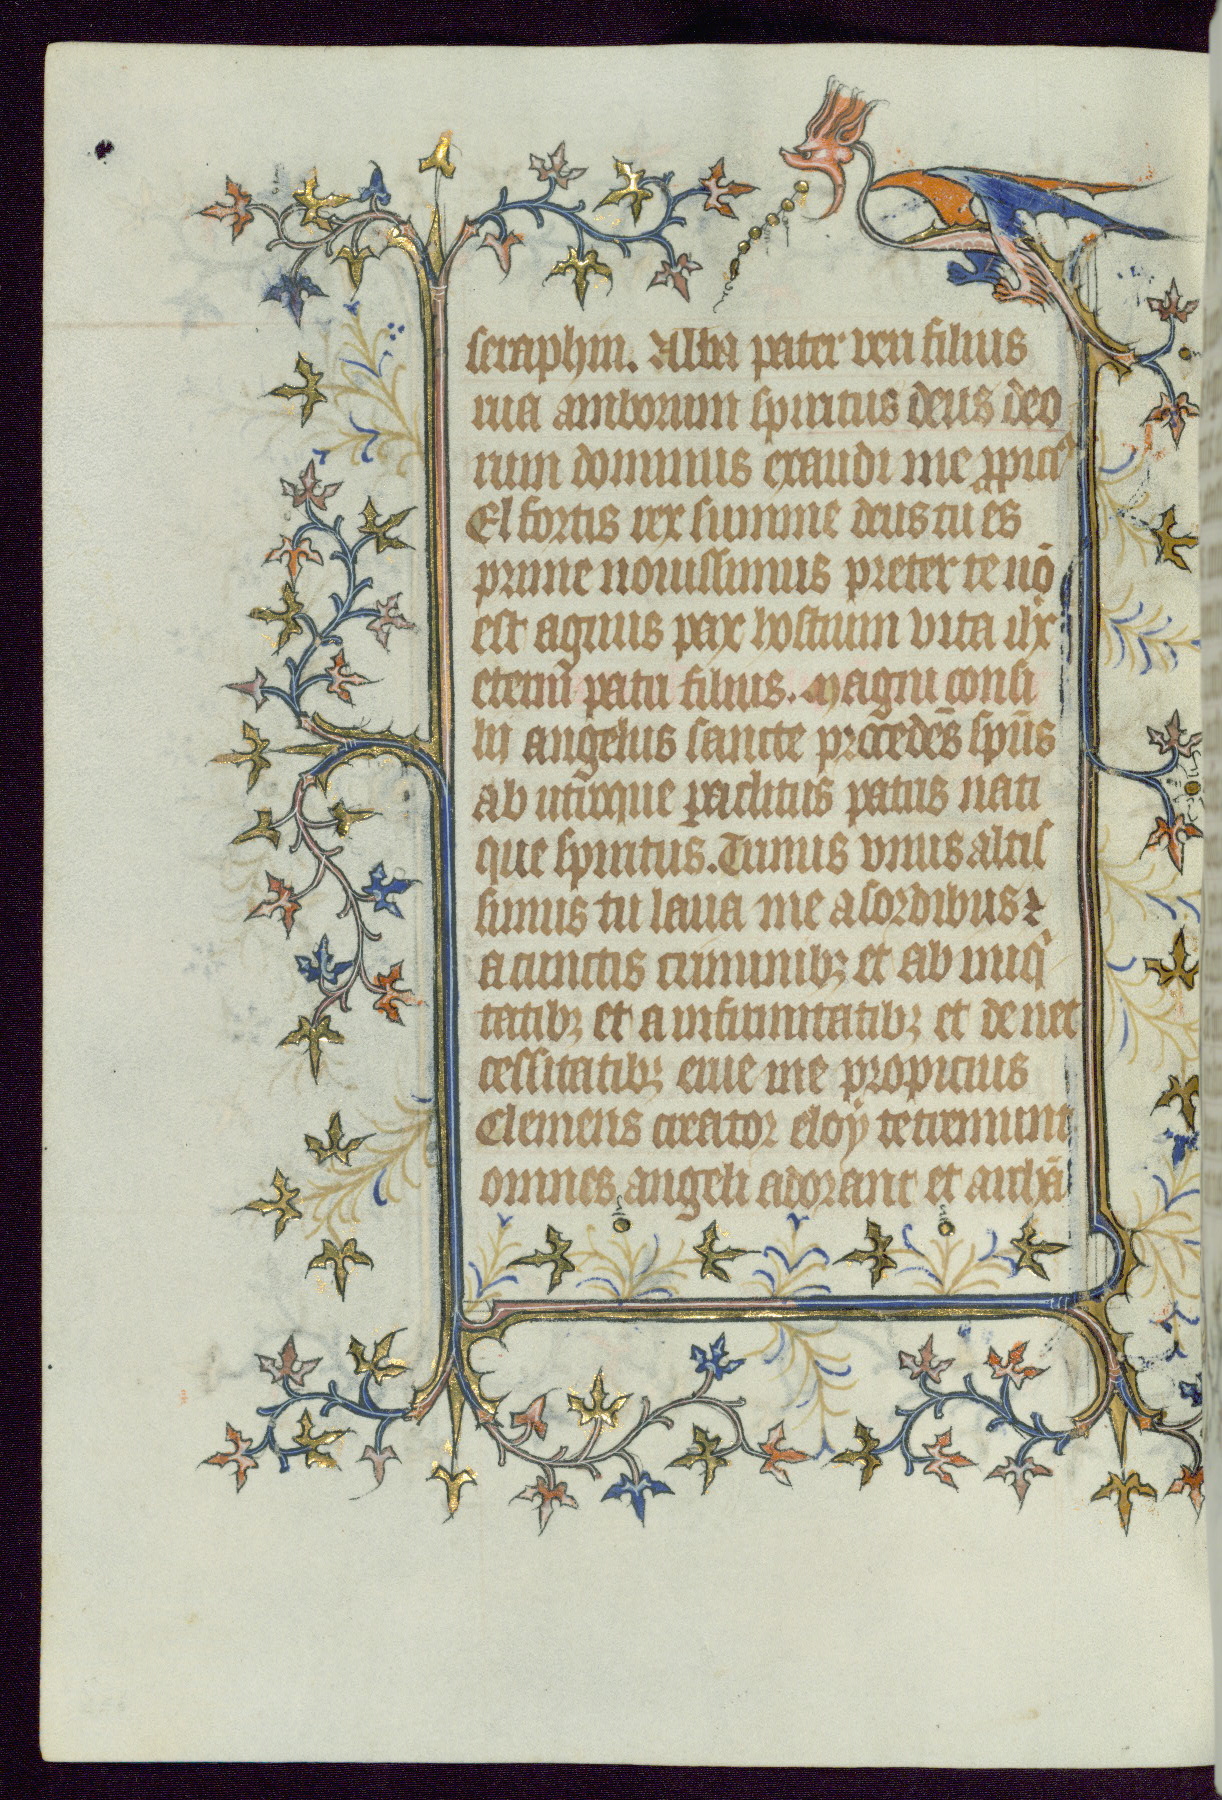 seraphin. Abba pater ueri filius
rua amborum spiritus deus deo
rum dominus exaudi me ꝓpici᷒
El fortis rex summe deus tu es
prime nouissimus preter te nō
est agnus pax hostium vita lux
eterni patri filius. magni consi
lij angelus sancte procedēs spūs
ab utroque paclitus patris nati
que spiritus. Trinus vnus altis
simus tu laua me a sordibus ⁊
a cunctis criminibꝫ et ab iniq
tatibꝫ et a infirmitatibꝫ et de nec
cessitatibꝫ erue me propicius
Clemens creator eloy te tremunt
omnes angeli adorant et archā